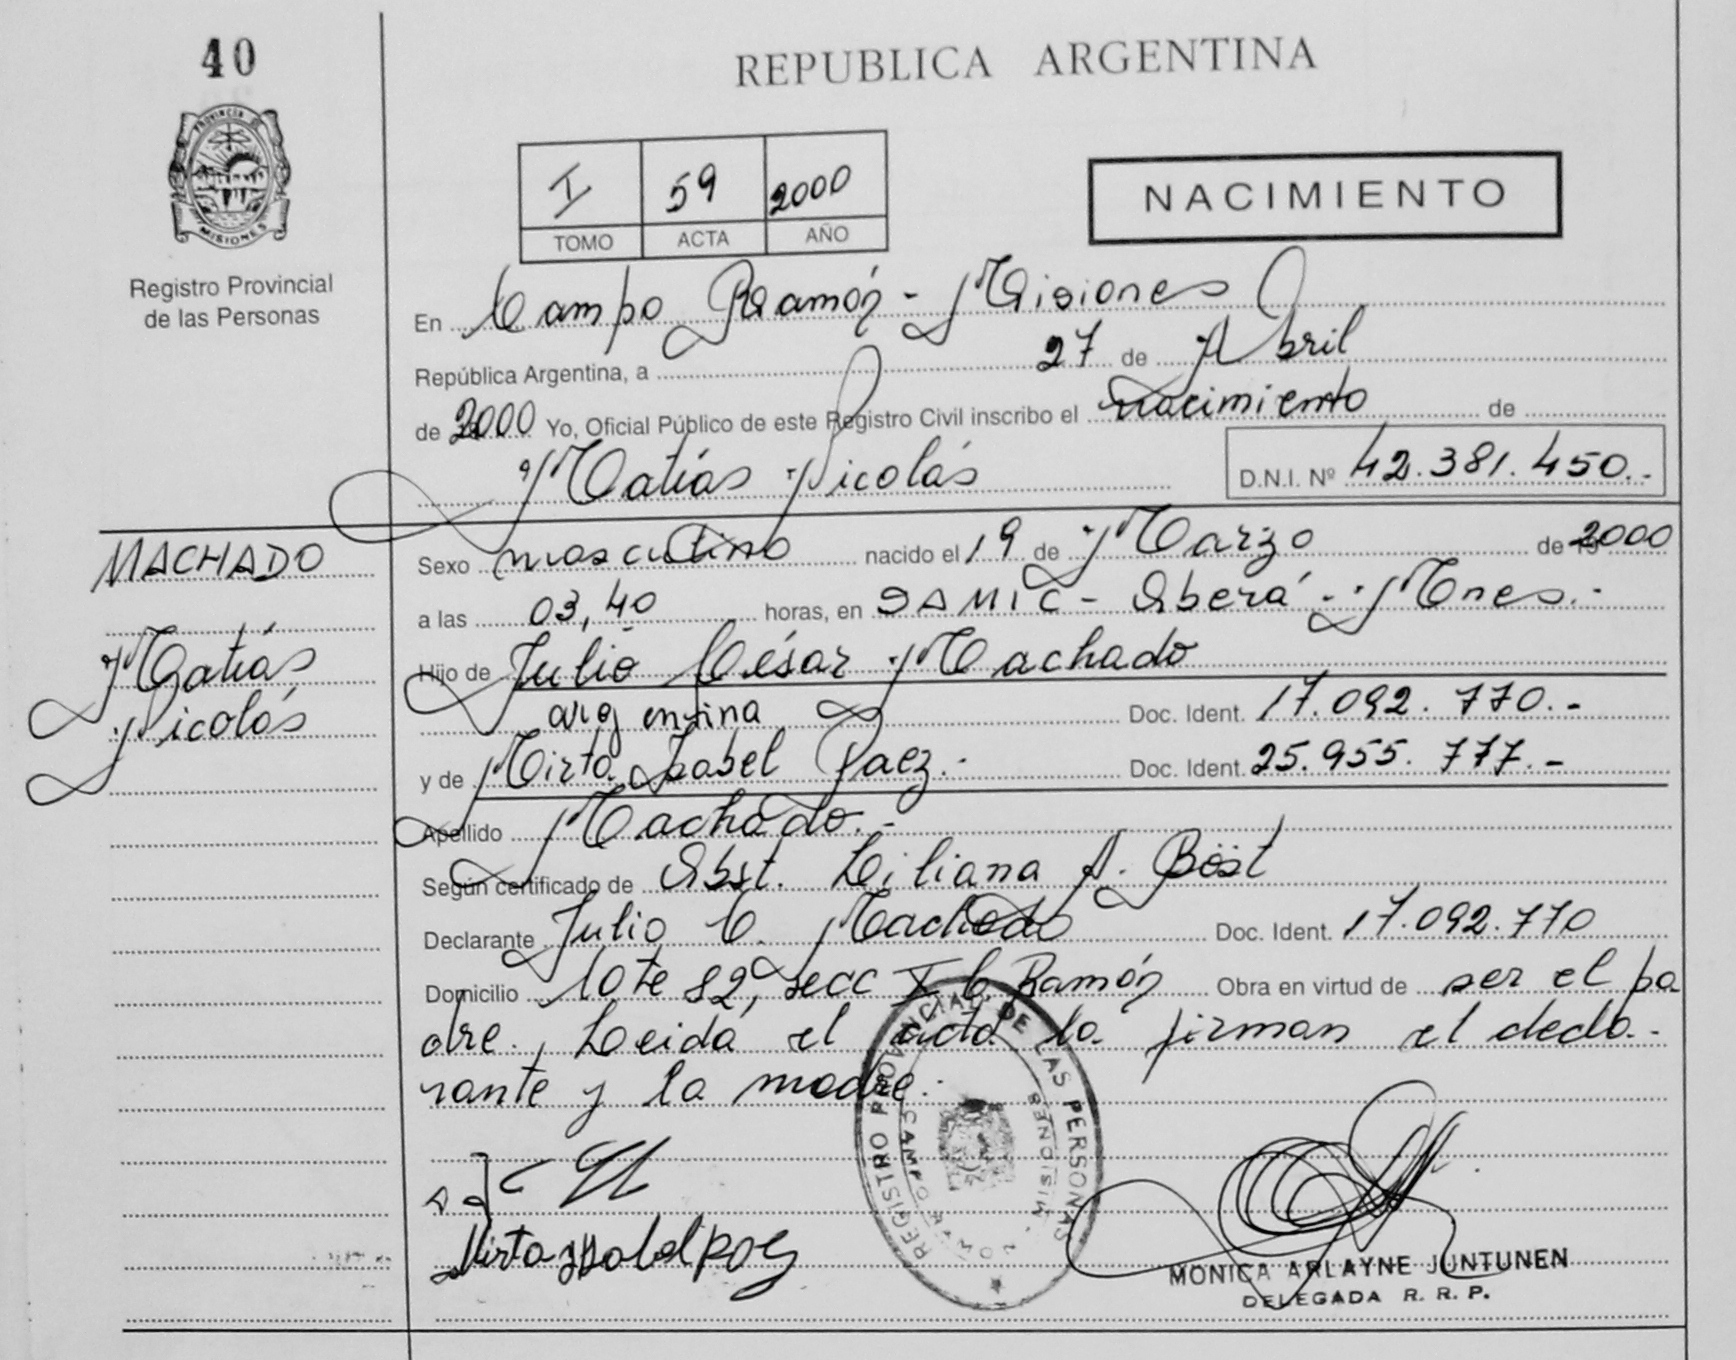 40
REPUBLICA ARGENTINA
PROVINCIA DE
MISIONES
Registro Provincial
de las Personas
I 59 2000
TOMO ACTA AÑO
NACIMIENTO
En Campo Ramón - Misiones
República Argentina, a 27 de Abril
de 2000 Yo, Oficial Público de este Registro Civil inscribo el nacimiento de
Matías Nicolás D.N.I. Nº 42.381.450.-
MACHADO
Matías
Nicolás
Sexo masculino nacido el 19 de Marzo de 2000
a las 03,40 horas, en SAMIC - Oberá - Mnes.-
Hijo de Julio César Machado
argentina Doc. Ident. 17.092.770.-
y de Mirta Isabel Paez.- Doc. Ident. 25.955.777.-
Apellido Machado.-
Según certificado de Obst. Liliana A. Böst
Declarante Julio C. Machado Doc. Ident. 17.092.770
Domicilio lote 82, secc X C. Ramón Obra en virtud de ser el pa
dre., Leida el acta la firman el decla-
rante y la madre.
Mirta Isabel Paez
REGISTRO PROVINCIAL DE LAS PERSONAS
CAMPO RAMON - MISIONES
MONICA ARLAYNE JUNTUNEN
DELEGADA R. R. P.